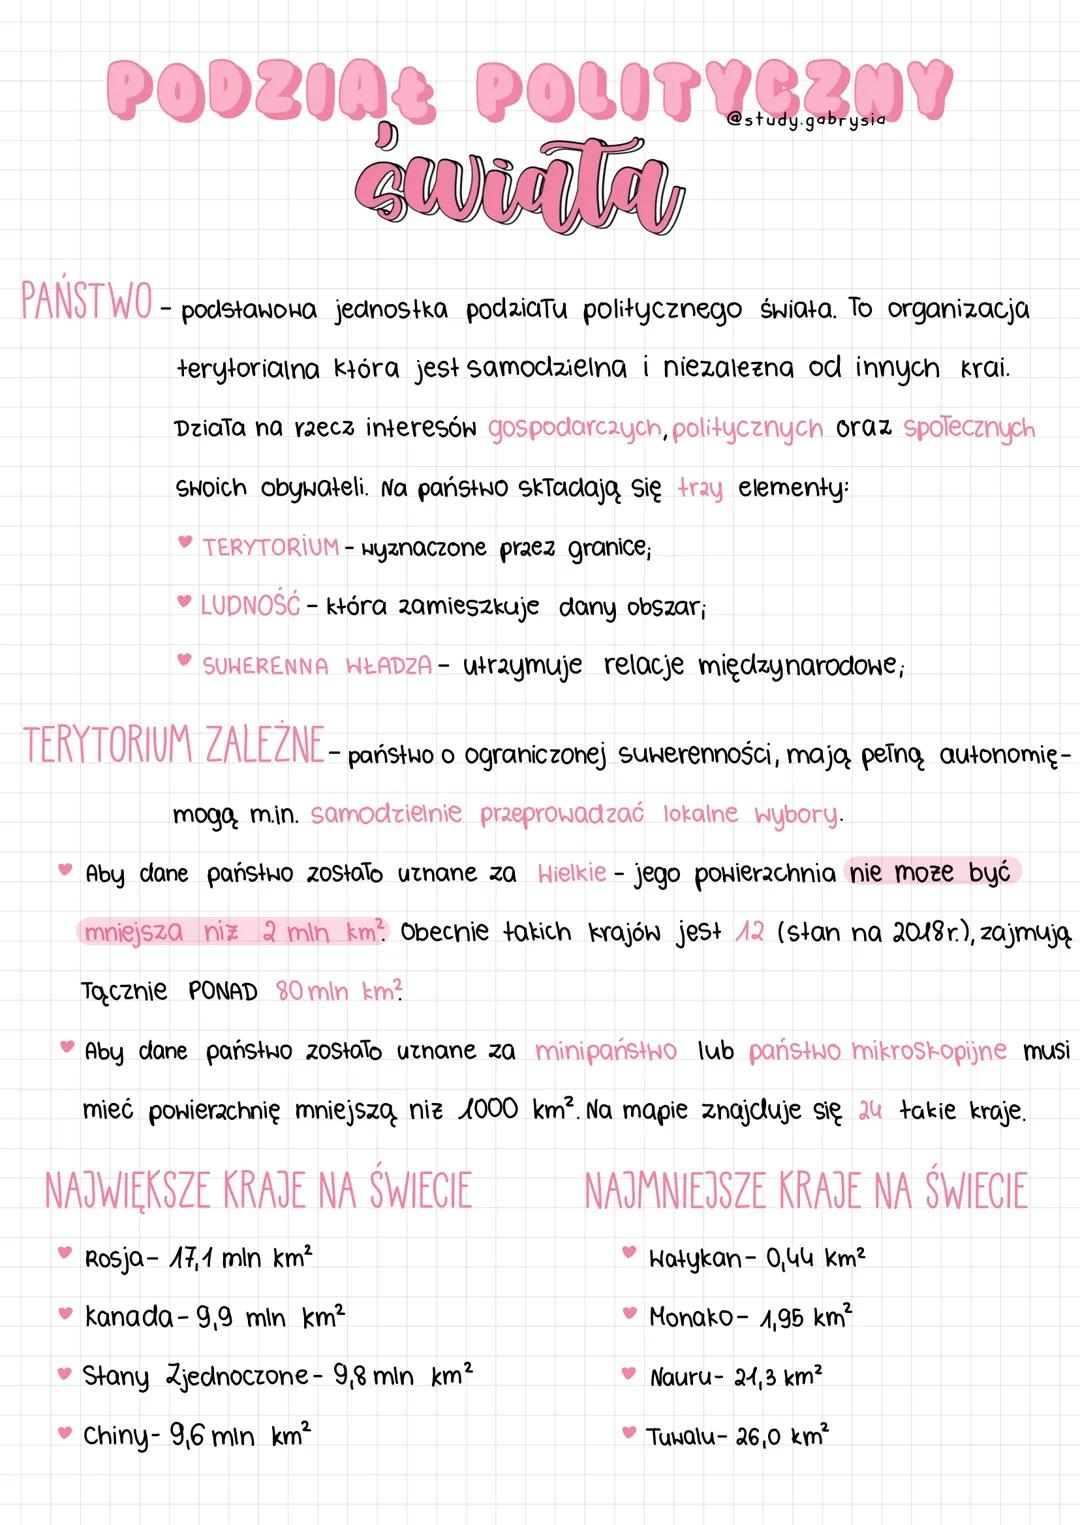 PODZIAŁ POLITYCZNY
@study.gabrysia
świata
PAŃSTWO - podstawowa jednostka podziału politycznego świata. To organizacja
terytorialna która jest samodzielna i niezależna od innych krai.
Działa na rzecz interesów gospodarczych, politycznych oraz społecznych
swoich obywateli. Na państwo składają się trzy elementy:
♥ TERYTORIUM - wyznaczone przez granice;
♥ LUDNOŚĆ - która zamieszkuje dany obszar;
♥ SUWERENNA WŁADZA - utrzymuje relacje międzynarodowe;
TERYTORIUM ZALEŻNE - państwo o ograniczonej suwerenności, mają pełną autonomię -
mogą m.in. samodzielnie przeprowadzać lokalne wybory.
♥ Aby dane państwo zostało uznane za Wielkie - jego powierzchnia nie może być
mniejsza niż 2 mln km². Obecnie takich krajów jest 12 (stan na 2018r.), zajmują
łącznie PONAD 80 mln km².
♥ Aby dane państwo zostało uznane za minipaństwo lub państwo mikroskopijne musi
mieć powierzchnię mniejszą niż 1000 km². Na mapie znajduje się 24 takie kraje.
NAJWIĘKSZE KRAJE NA ŚWIECIE
♥ Rosja - 17,1 mln km²
♥ Kanada - 9,9 mln km²
♥ Stany Zjednoczone - 9,8 mln km²
♥ Chiny - 9,6 mln km²
NAJMNIEJSZE KRAJE NA ŚWIECIE
♥ Watykan - 0,44 km²
♥ Monako - 1,95 km²
♥ Nauru - 21,3 km²
♥ Tuwalu - 26,0 km²